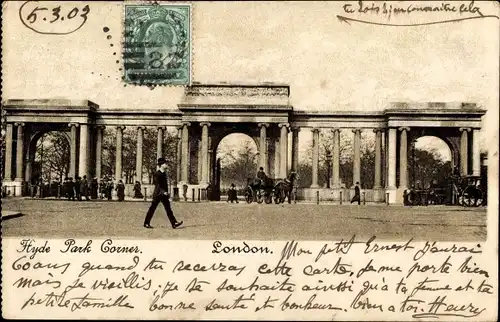 5.3.03
tu dois bien connaitre cela
82
Hyde Park Corner. London. Mon petit Ernest J'aurai
60 ans quand tu recevras cette carte, Je me porte bien
mais je vieillis; je te souhaite ainsi qu'à ta femme et ta
petite famille bonne santé et bonheur. bien à toi. Henry